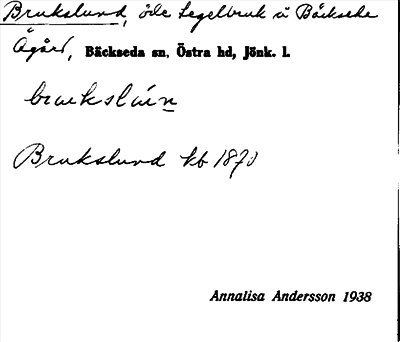 Brukslund, öde tegelbruk å Bäckseda
Ägård, Bäckseda sn, Östra hd, Jönk. l.
brukslúṉ
Brukslund kb 1870
Annalisa Andersson 1938